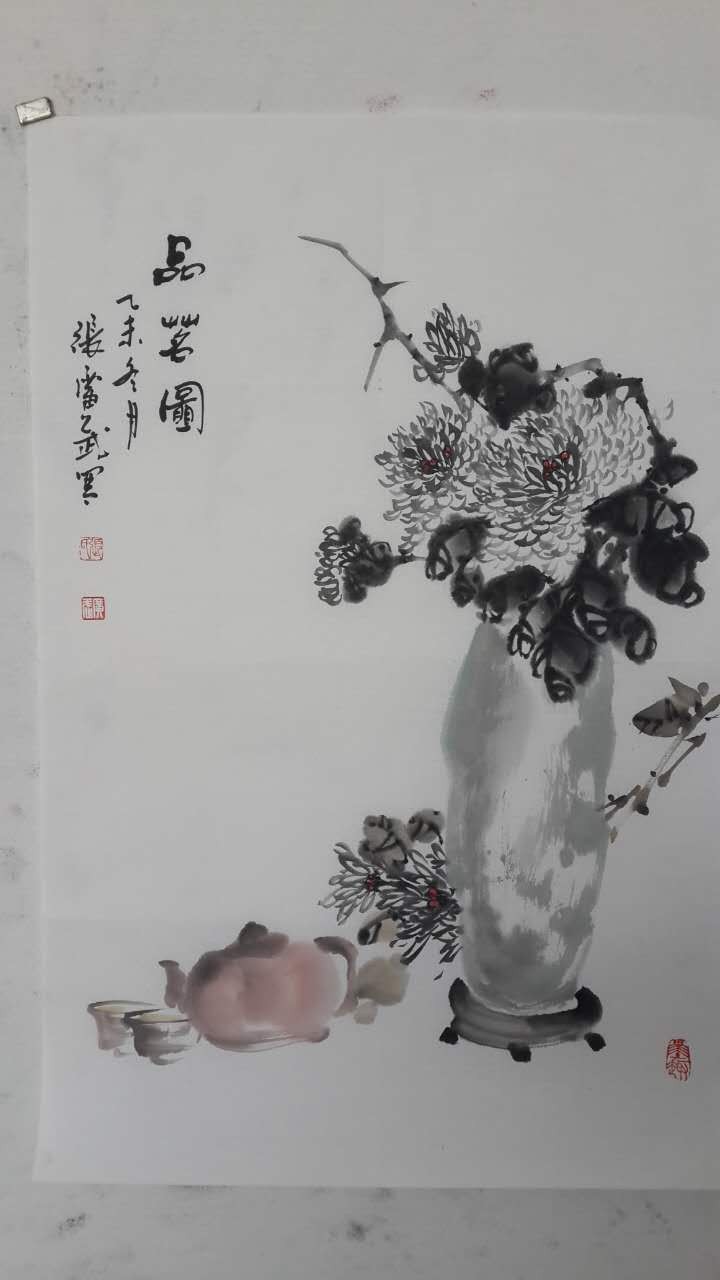 品茗圖
乙未冬月
張雷武寫